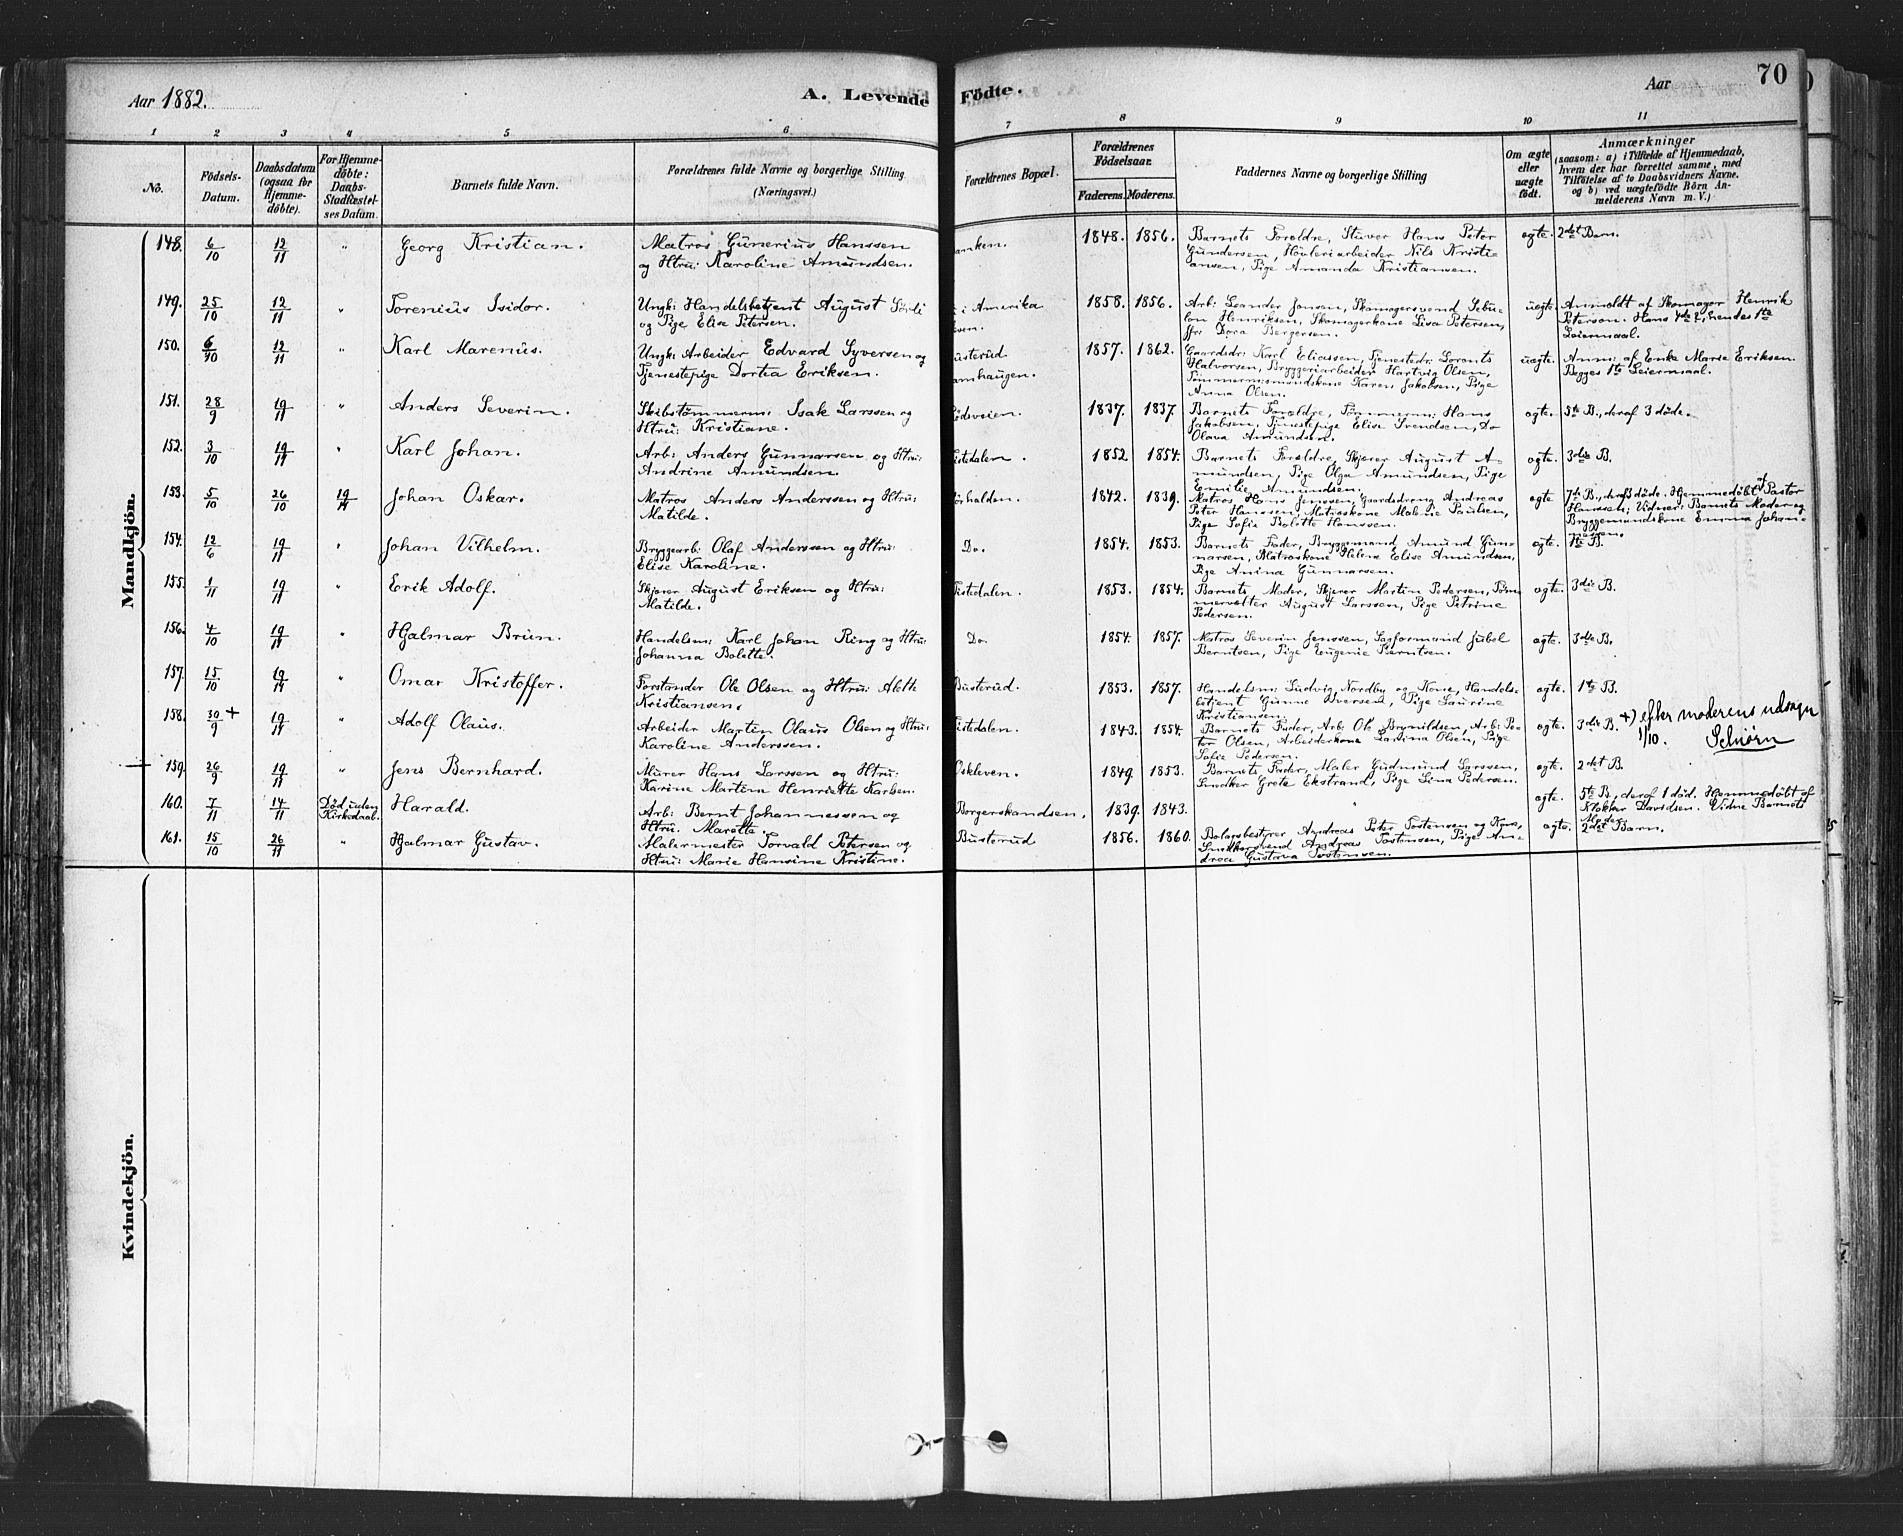 Aar 1882.
A. Levende Födte.
Aar
70
1 2 3 4 5 6 7 8 9 10 11
No.
Födsels-Datum.
Daabsdatum (ogsaa for Hjemmedöbte).
For Hjemmedöbte: Daabs-Stadfæstelses Datum.
Barnets fulde Navn.
Forældrenes fulde Navne og borgerlige Stilling (Næringsvei.)
Forældrenes Bopæl.
Forældrenes Födselsaar.
Faderens. Moderens.
Faddernes Navne og borgerlige Stilling
Om ægte eller uægte födt.
Anmærkninger
(saasom: a) i Tilfælde af Hjemmedaab, hvem der har forrettet samme, med Tilföielse af to Daabsvidners Navne. og b) ved uægtefödte Börn Anmelderens Navn m. V.)
Mandkjön.
148. 6/10 12/11 " Georg Kristian. Matros Gunerius Hanssen og Htru: Karoline Amundsen. anken. 1848. 1856. Barnets Forældre, Stuver Hans Peter Gundersen, Hövleriarbeider Nils Kristiansen, Pige Amanda Kristiansen. ægte. 2det Barn.
149. 25/10 12/11 " Torenius Isidor. Ungk: Handelsbetjent August Sörli og Pige Elise Petersen. i Amerika 1858. 1856. Arb: Leander Jonsen, Skomagersvend Sebulon Henriksen, Skomagerkone Lisa Petersen, Dora Bergersen. uægte. Anmeldt af Skomager Henrik Peterson. Hans 4de?, hendes 1ste Leiermaal.
150. 6/10 12/11 " Karl Marenus. Ungk: Arbeider Edvard Syversen og Tjenestepige Dortea Eriksen. usterud. amhaugen. 1857. 1862. Gaardsdr: Karl Eliassen, Tjenestedr: Lorents Halvorsen, Bryggeriarbeider Hartvig Olsen, Tömmermandskone Karen Jakobsen, Pige Anna Olsen. uægte. Anm: af Enke Marie Eriksen. Begges 1ste Leiermaal.
151. 28/9 19/11 " Anders Severin. Skibstömmerm: Isak Larssen og Htru: Kristiane. ödsveien. 1837. 1837. Barnets Forældre, Tömmerm: Hans Jakobsen, Tjenestepige Elise Svendsen, Do Olava Amundsen. ægte. 5te B., deraf 3 döde.
152. 3/10 19/11 " Karl Johan. Arb: Anders Gunnarsen og Htru: Andrine Amundsen. istedalen. 1852 1854. Barnets Forældre, Skjærer August Amundsen, Pige Olga Amundsen, Pige Emilie Amundsen. ægte. 3die B.
153. 5/10 26/10 19/11 Johan Oskar. Matros Anders Anderssen og Htru: Matilde. örhalden. 1842. 1839. Matros Hans Jenssen, Gaardsdreng Andreas Peter Hanssen, Matroskone Malenie Paulsen, Pige Sofie Bolette Hanssen. ægte 7de B., deraf 3 döde. Hjemmedöbt af Pastor Hanssen; Vidner: Barnets Moder og Bryggemandskone Emma Johannessen.
154. 12/6 19/11 " Johan Vilhelm. Bryggearb: Olaf Anderssen og Htru: Elise Karoline. Do. 1854. 1853. Barnets Fader, Bryggemand Amund Gunnarsen, Matroskone Helene Elise Amundsen, Pige Anina Gunnarsen. ægte. 1te B.
155. 1/11 19/11 " Erik Adolf. Skjærer August Eriksen og Htru: Matilde. Tistedalen. 1853. 1854. Barnets Moder, Skjærer Martin Pedersen, Tömmervælter August Larssen, Pige Petrine Pedersen. ægte. 3die B.
156. 4/10 19/11 " Hjalmar Brun. Handelsm: Karl Johan Ring og Htru: Johanna Bolette. Do. 1854. 1857. Matros Severin Jenssen, Sagformand Jubel Berntsen, Pige Eugenie Berntsen. ægte. 3die B.
157. 15/10 19/11 " Omar Kristoffer. Forstander Ole Olsen og Htru: Alette Kristiansen. Busterud. 1853. 1857. Handelsm: Ludvig Nordby og Kone, Handelsbetjent Gunne Iversen, Pige Laurine Kristiansen. ægte. 1te B.
158. 30/9 + 19/11 " Adolf Olaus. Arbeider Martin Olaus Olsen og Htru: Karoline Anderssen. istedalen. 1843. 1854. Barnets Fader, Arb: Ole Brynildsen, Arb: Peter Olsen, Arbeiderkone Larina Olsen, Pige Sofie Pedersen. ægte. 3die B. +) efter moderens udsagn 1/10. Schiörn
159. 26/9 19/11 " Jens Bernhard. Murer Hans Larssen og Htru: Karine Martine Henriette Karlsen. Oskleven. 1849. 1853. Barnets Fader, Maler Gudmund Larssen, Snedker Grete Ekstrand, Pige Lina Pedersen. ægte. 2det B.
160. 7/11 14/11 Död uden Kirkedaab. Harald. Arb: Bernt Johannessen og Htru: Marette. Borgerskandsen. 1839. 1843. " ægte. 5te B., deraf 1 död. Hjemmedöbt af Klokker Davidsen. Vidne Barnets Moder.
161. 15/10 26/11 " Hjalmar Gustav. Malermester Torvald Petersen og Htru: Marie Hansine Kristine. Busterud 1856. 1860. Bolagsbestyrer Andreas Peter Torstensen og Kone, Snedkersvend Andreas Torstensen, Pige Andrea Gustava Torstensen. ægte. 2det Barn.
Kvindekjön.